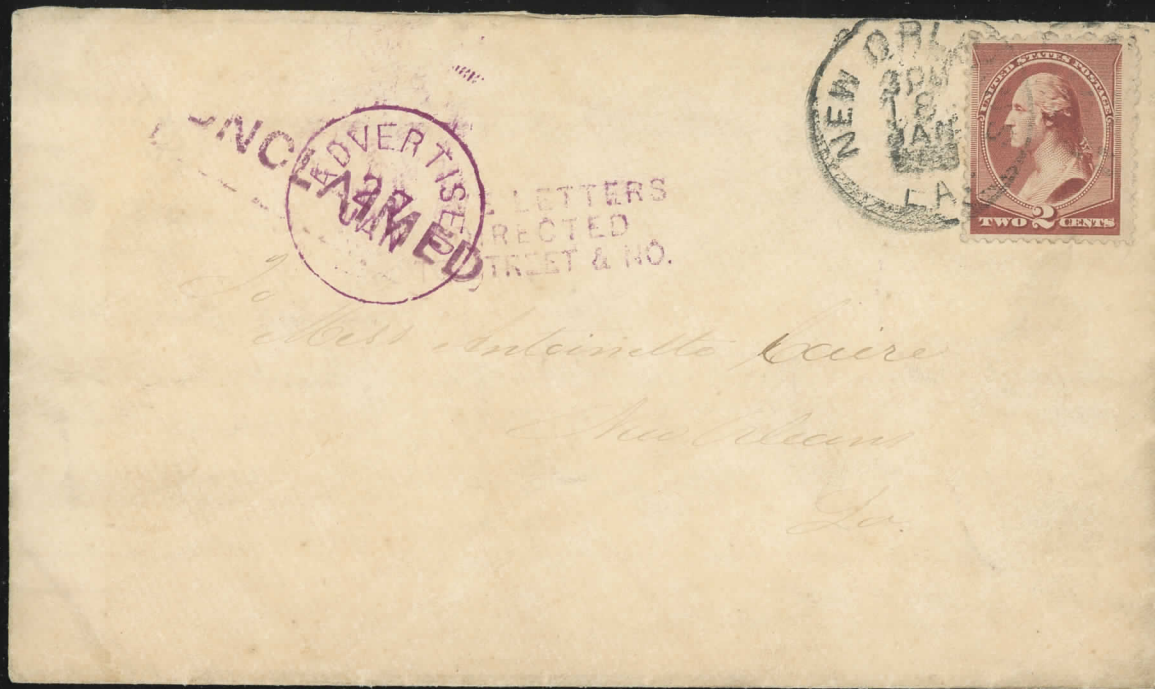 NEW ORLEANS
3PM
18
JAN
LA
UNITED STATES POSTAGE
TWO 2 CENTS
UNCLAIMED
ADVERTISED
27
JAN
LETTERS
RECTED
STREET & NO.
To
Miss Antoinette
New Orleans
La.